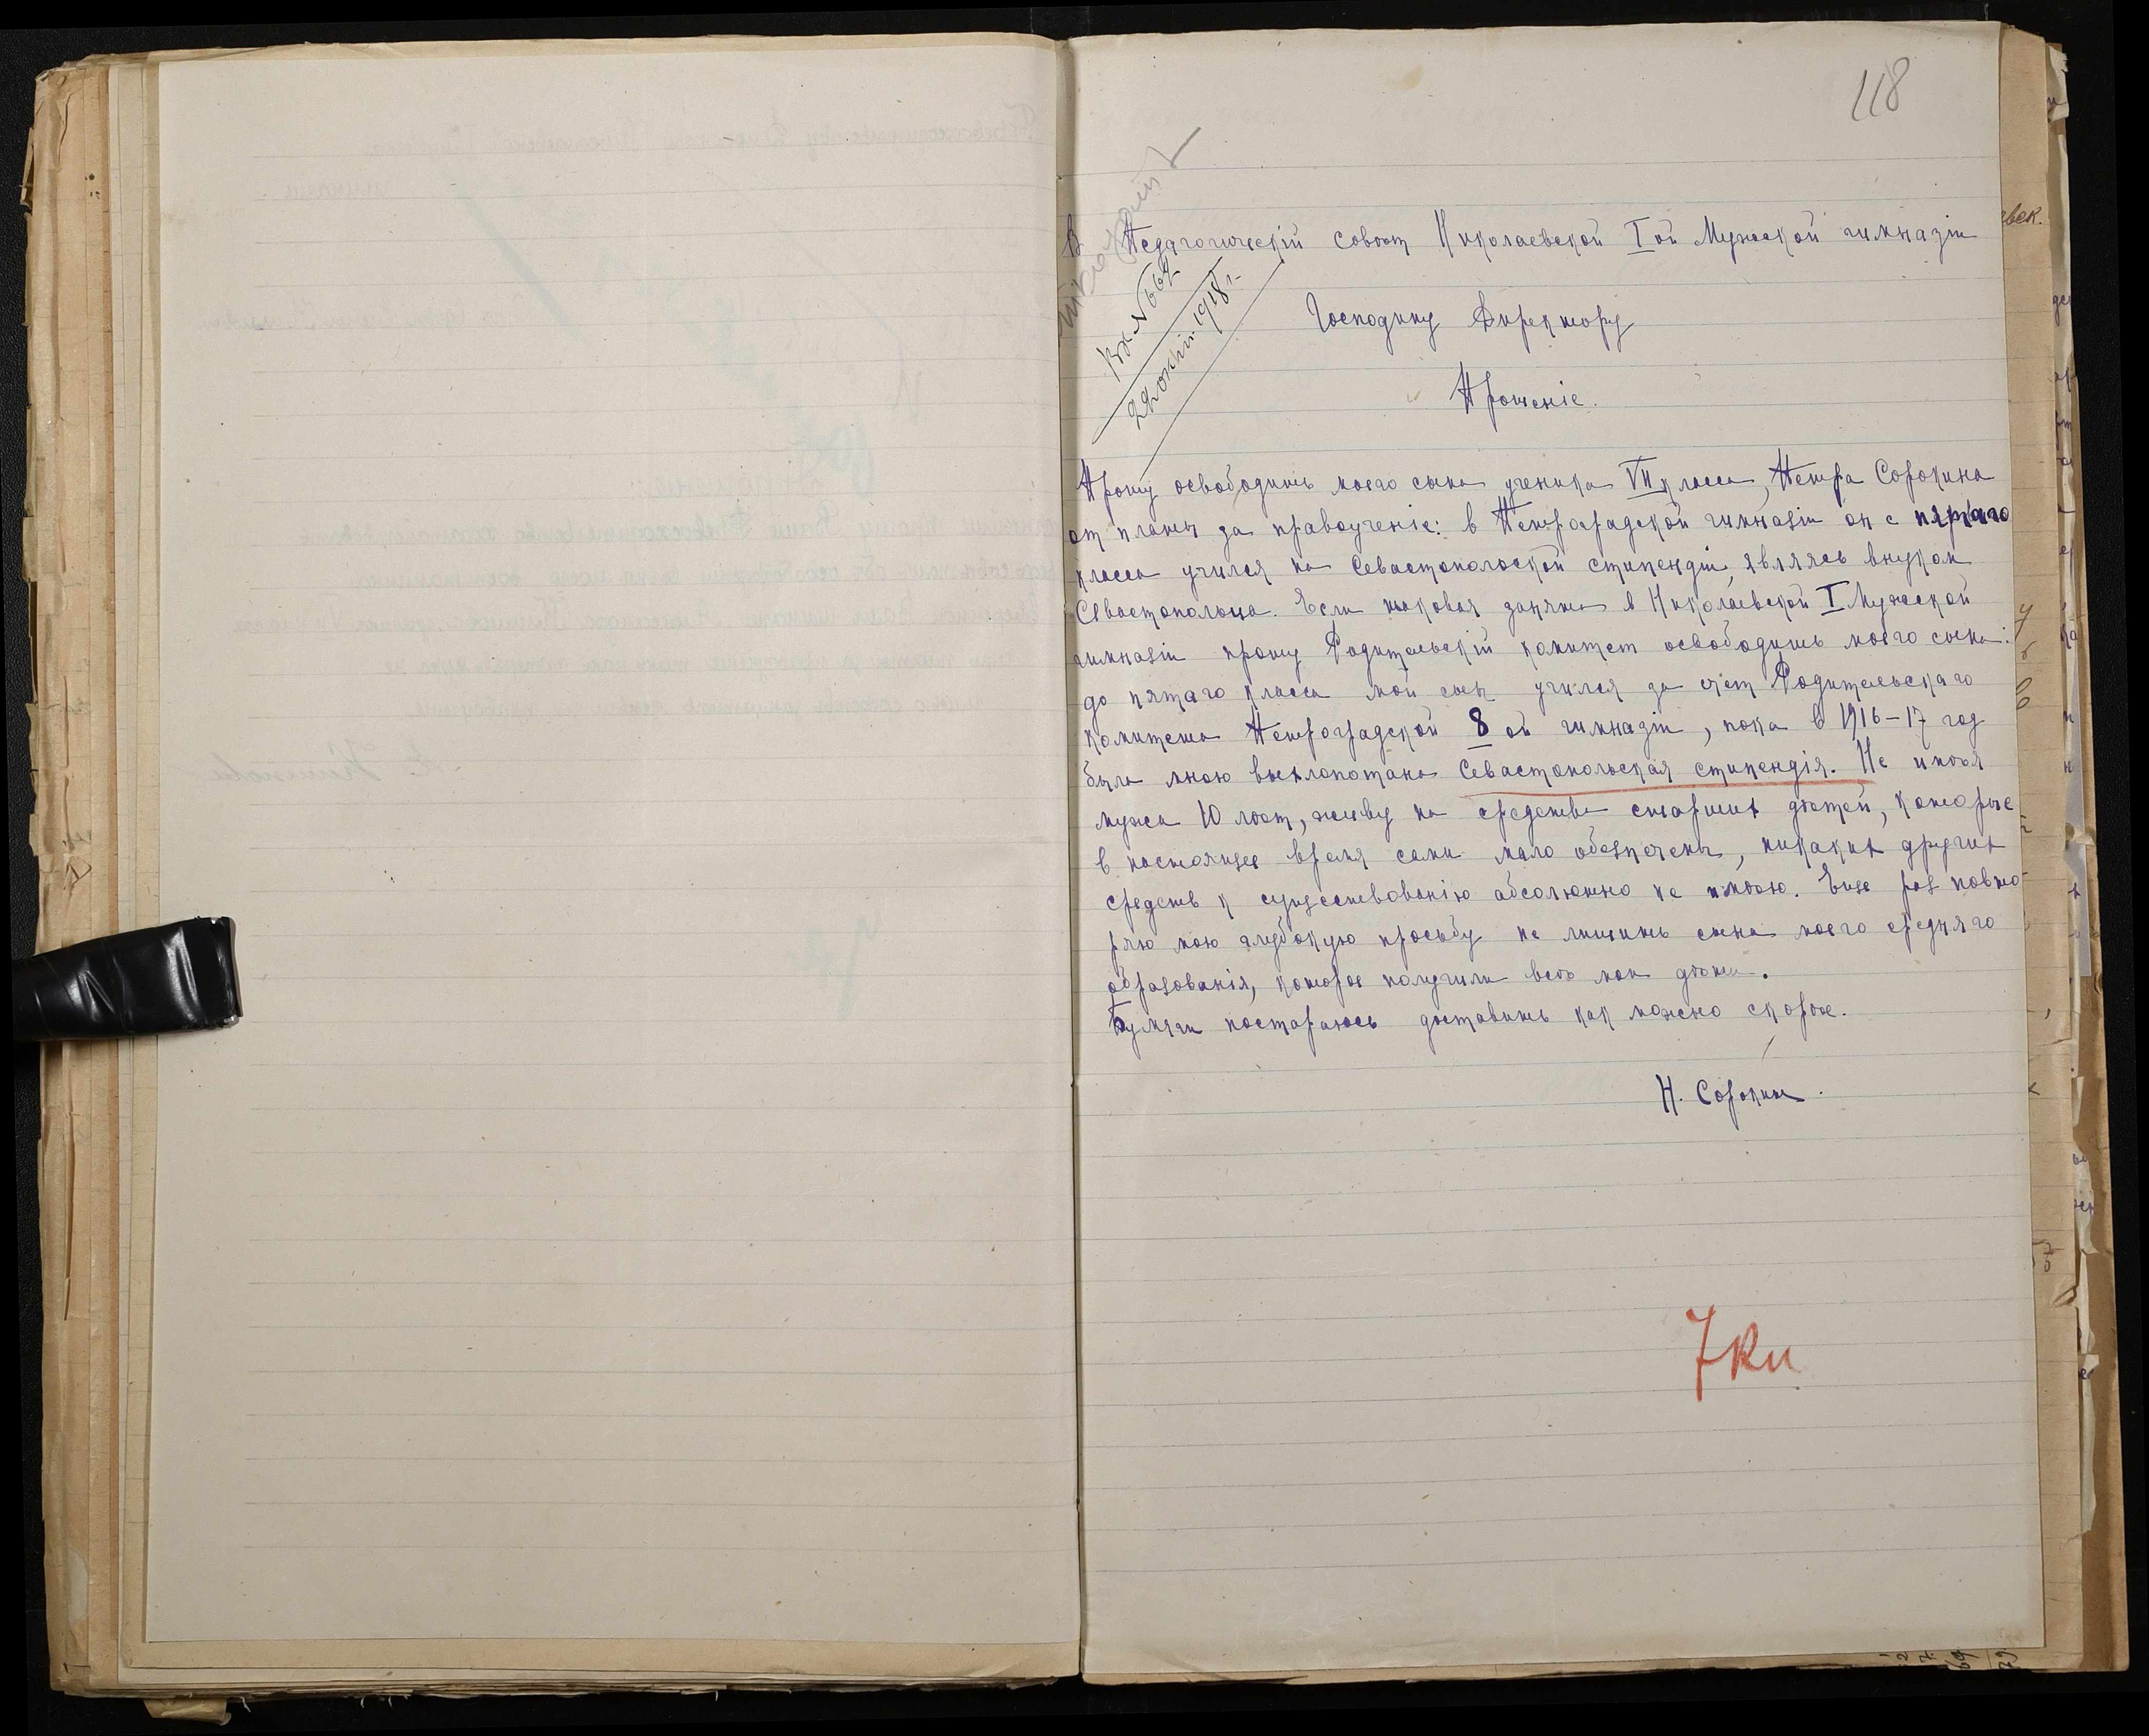 118
В Педагогическій совѣт Николаевской I ой Мужской гимназіи
Вх. № 662
22 окт. 1918 г.
Господину Директору
Прошеніе.
Прошу освободить моего сына ученика VII класса, Петра Сорокина
от платы за правоученіе: в Петроградской гимназіи он с пятаго
класса учился на Севастопольской стипендіи, являясь внуком
Севастопольца. Если таковая занята в Николаевской I Мужской
гимназіи прошу Родительскій комитет освободить моего сына:
до пятаго класса мой сын учился за счет Родительскаго
комитета Петроградской 8 ой гимназіи, пока в 1916-17 год
была мною выхлопотана Севастопольская стипендія. Не имѣя
мужа 10 лѣт, живу на средства старших дѣтей, которые
в настоящее время сами мало обезпечены, никаких других
средств к существованію абсолютно не имѣю. Еще раз повто-
ряю мою глубокую просьбу не лишить сына моего средняго
образованія, которое получили всѣ мои дѣти.
Бумаги постараюсь доставить как можно скорѣе.
Н. Сорокина.
7 кл